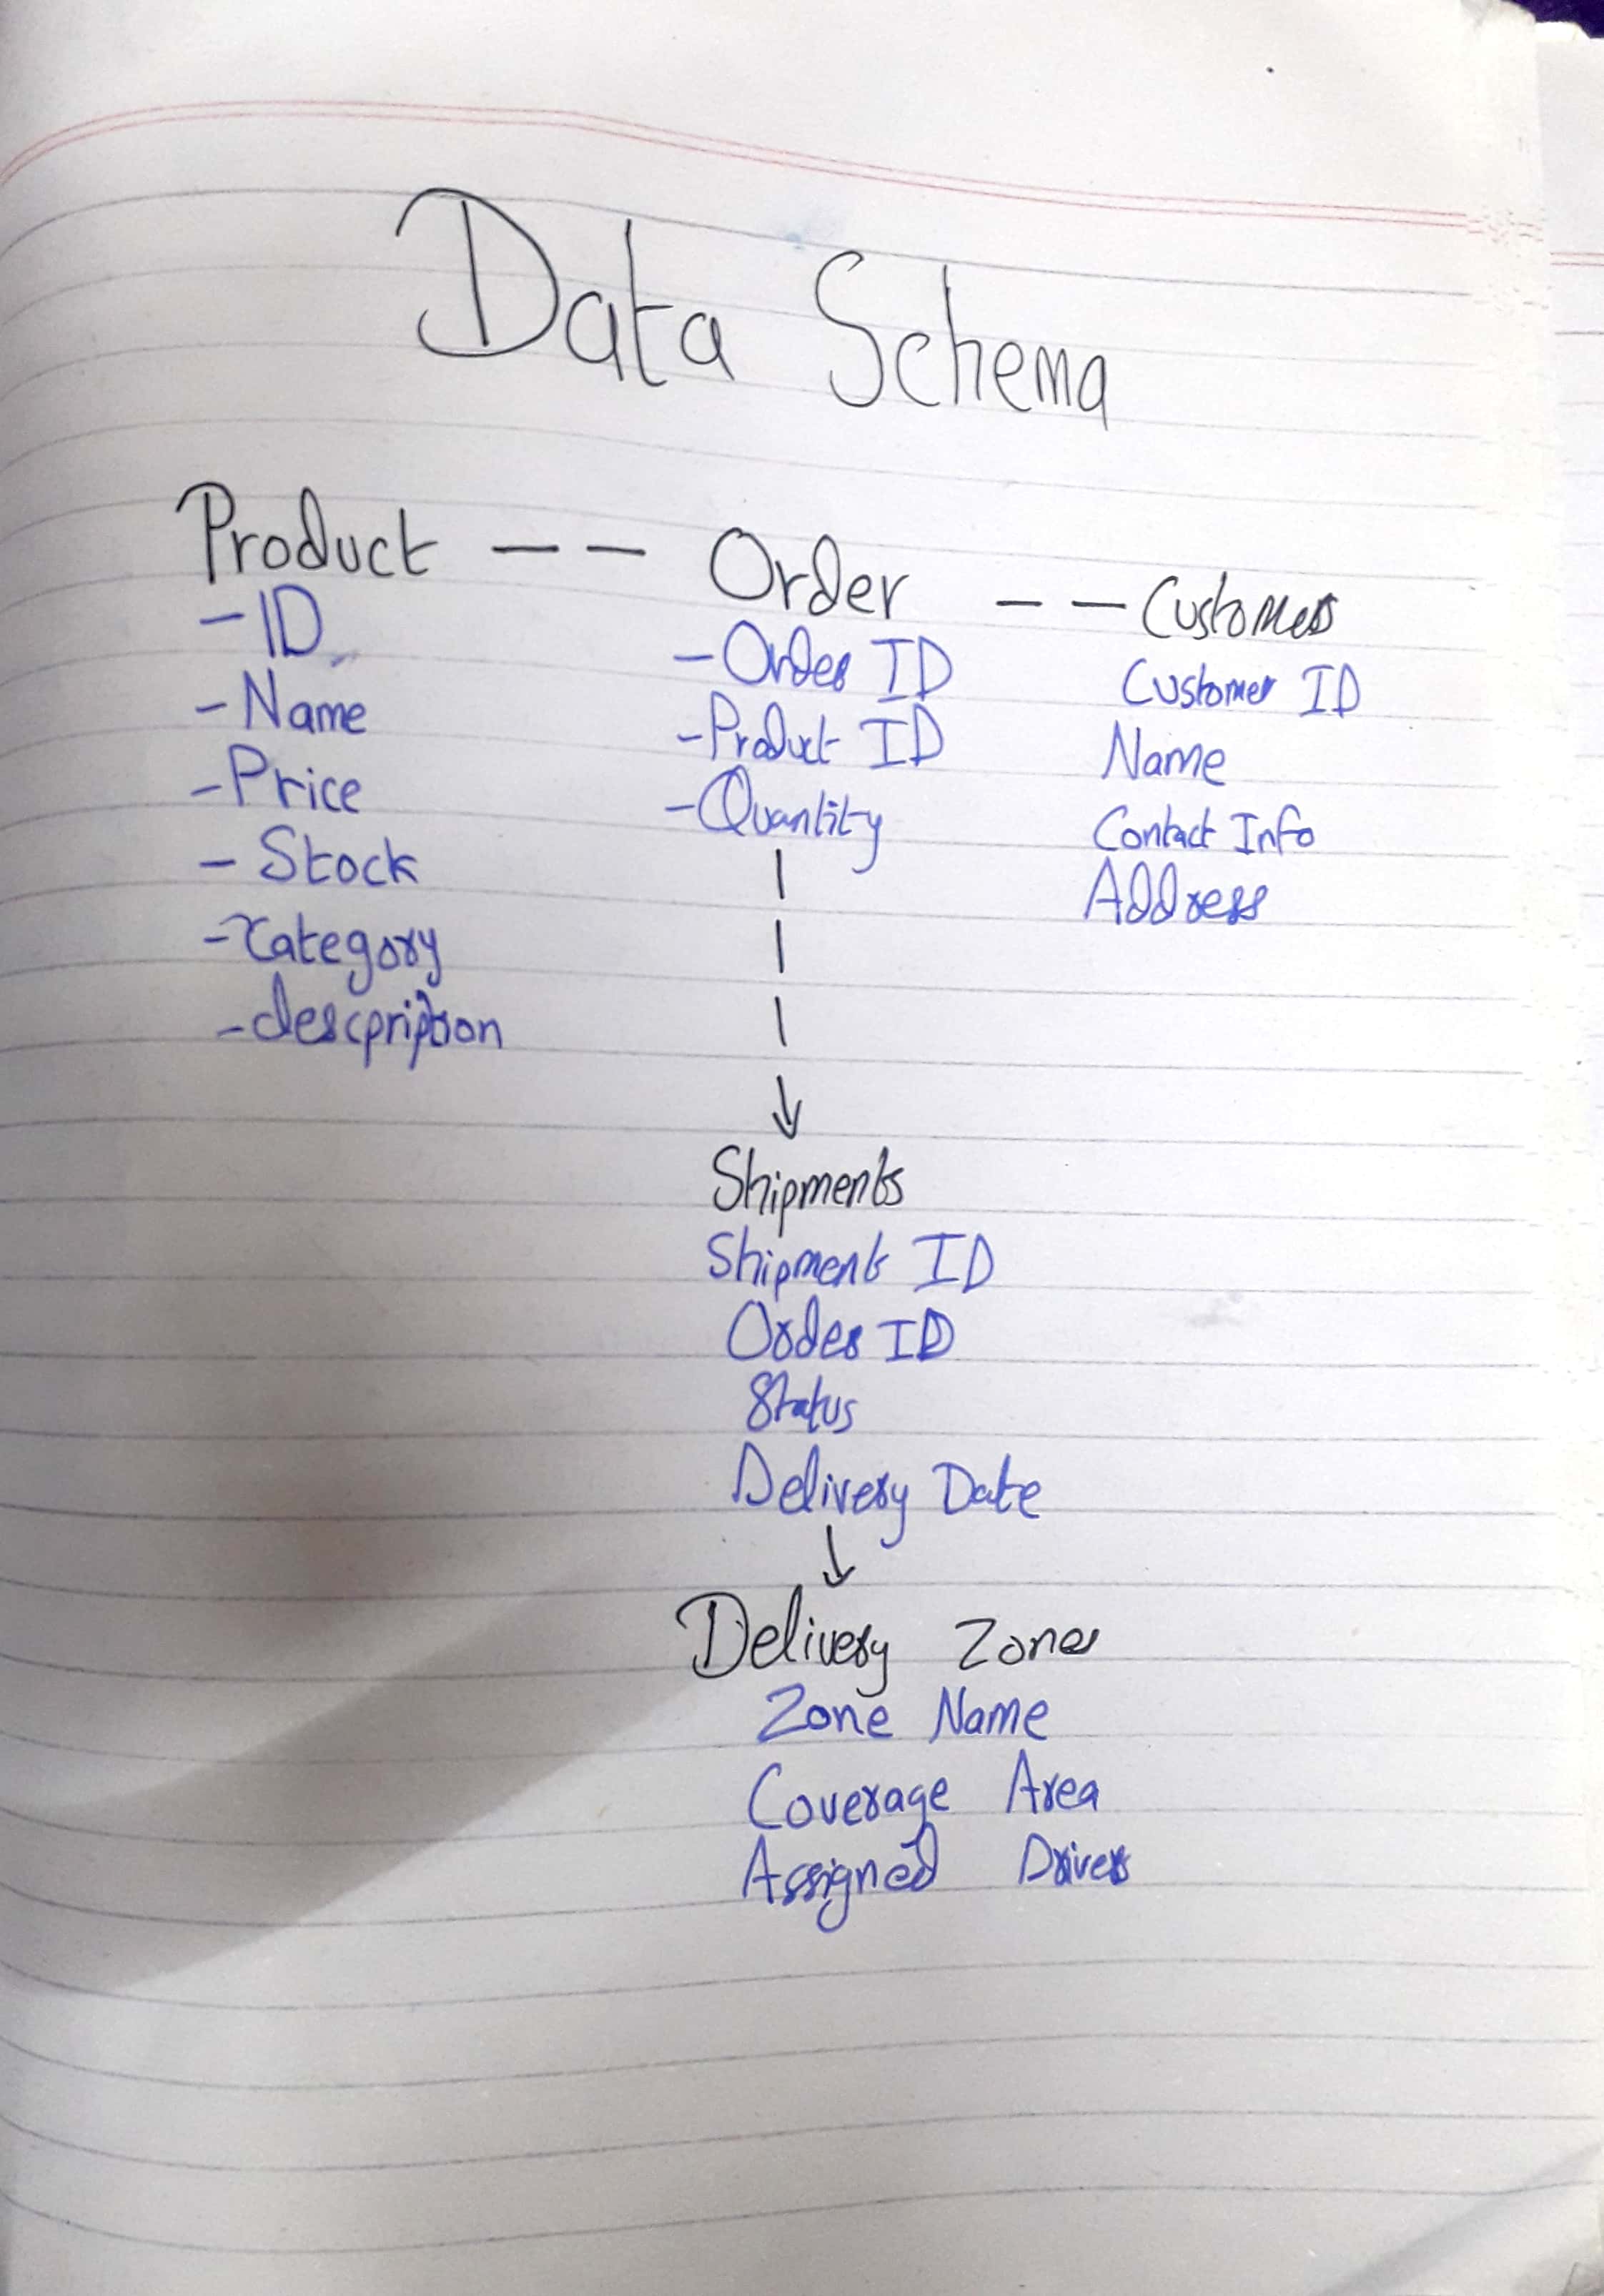 Data Schema
Product -- Order -- Customer
- ID
- Name
- Price
- Stock
- Category
- descpription
- Order ID
- Product ID
- Quantity
Customer ID
Name
Contact Info
Address
Shipments
Shipment ID
Order ID
Status
Delivery Date
Delivery Zones
Zone Name
Coverage Area
Assigned Driver